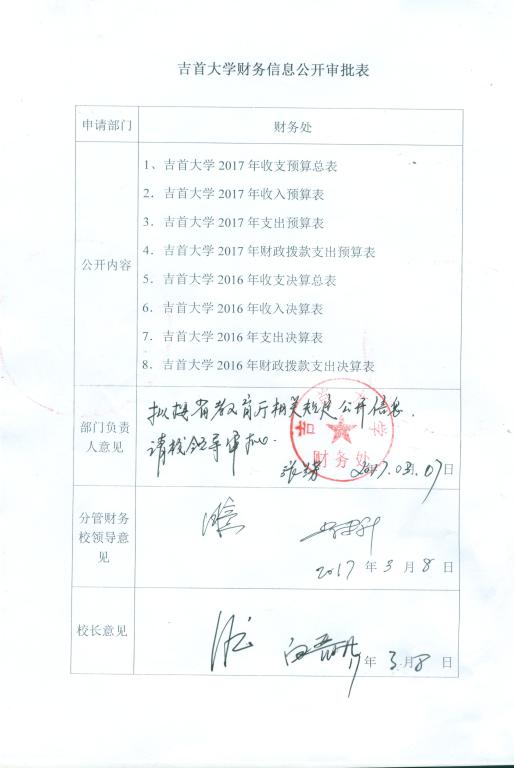 吉首大学财务信息公开审批表
申请部门
财务处
公开内容
1、吉首大学 2017 年收支预算总表
2、吉首大学 2017 年收入预算表
3、吉首大学 2017 年支出预算表
4、吉首大学 2017 年财政拨款支出预算表
5、吉首大学 2016 年收支决算总表
6、吉首大学 2016 年收入决算表
7、吉首大学 2016 年支出决算表
8、吉首大学 2016 年财政拨款支出决算表
部门负责
人意见
拟按省教育厅相关规定公开信息.
请校领导审批.
2017.03.07日
吉首大学
财务处
分管财务
校领导意
见
2017 年 3 月 8 日
校长意见
年 3 月 8 日